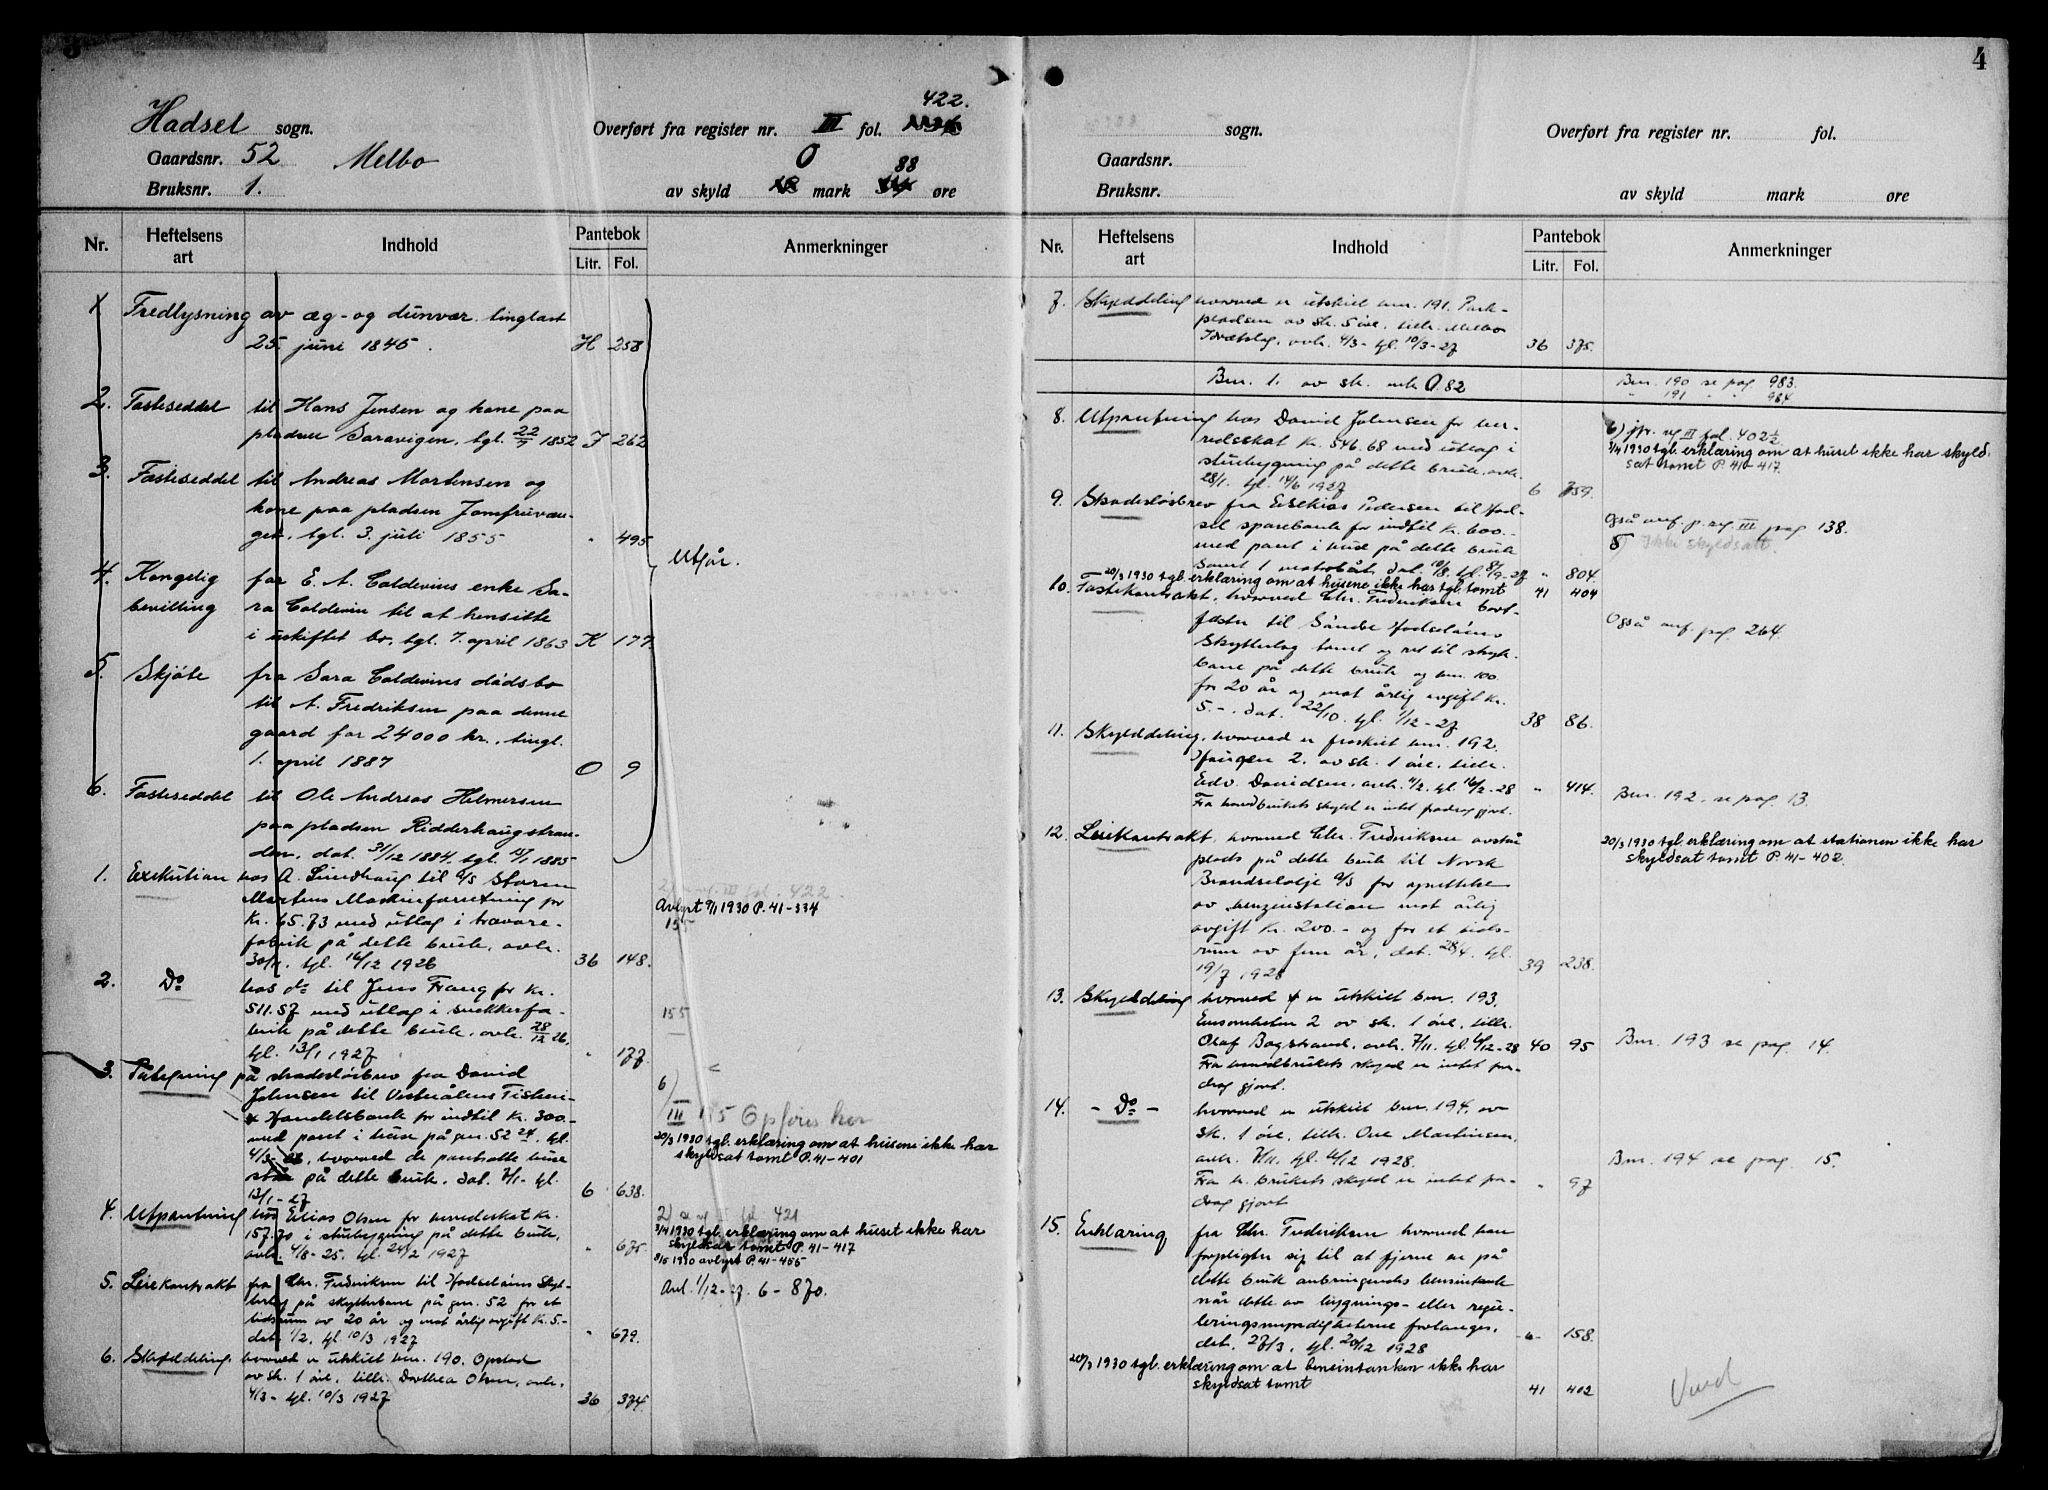 3
Hadsel sogn.
Gaardsnr. 52 Melbo
Bruksnr. 1.
422.
Overført fra register nr. III fol.
0 88
av skyld mark øre
Nr. Heftelsens art Indhold Pantebok Litr. Fol. Anmerkninger
1 Fredlysning av æg- og dunvær tinglæst
25 juni 1845. H 258
2. Fæsteseddel til Hans Jensen og kone paa
pladsen Saravigen, tgl. 22/7 1852 J 262
3. Fæsteseddel til Andreas Mortensen og
kone paa pladsen Jomfruvæn-
get, tgl. 3. juli 1855 " 495
Utgår.
4. Kongelig for E. A. Coldevins enke Sa-
bevilling ra Coldevin til at hensitte
i uskiftet bo, tgl. 7. april 1863 K 177.
5. Skjöte fra Sara Coldevins dödsbo
til A. Fredriksen paa denne
gaard for 24000 kr., tingl.
1. april 1887 O 9
6. Fæsteseddel til Ole Andreas Helmersen
paa pladsen Ridderhaugstran-
den, dat. 31/12 1884, tgl. 15/1 1885
1. Exekution hos A. Lundhaug til a/s Storm
Martens Maskinforretning for
Kr. 65.73 med utlag i trævare-
fabrik på dette bruk, avh.
30/11. tgl. 16/12 1926 36 148.
III fol. 422
Avlyst 9/1 1930 P. 41-334
155
2. Do hos do til Jens Frang for kr.
511.57 med utlag i snekkerfa-
brik på dette bruk, avh. 28/12 26,
tgl. 13/1 1927 " 177.
155
3. Påtegning på skadeslösbrev fra David
Johnsen til Vesterålens Fiskeri-
& Handelsbank for indtil kr. 300.-
med pant i huse på gnr. 52 24, tgl.
4/3- 26, hvorved de pantsatte huse
står på dette bruk, dat. 7/1- tgl.
13/1-27 6 638.
6)
III 155 Opföres her
20/3 1930 tgl. erklæring om at husene ikke har
skyldsat tomt P. 41-401
4. Utpantning hos Elias Olsen for herredsskat kr.
157.70 i stubygning på dette bruk,
avh. 4/8-25. tgl. 24/2 1927 " 675.
2) 421
3/4 1930 tgl. erklæring om at huset ikke har
skyldsat tomt P. 41-417
8/5 1930 avlyst P. 41-455
5. Leiekontrakt fra Chr. Fredriksen til Hadselöens Skyt-
terlag på skytterbane på gnr. 52 for et
tidsrum av 20 år og mot årlig avgift kr. 5-
dat. 1/2, tgl. 10/3 1927 " 679.
Avl. 1/12-27. 6-870.
6. Skylddeling, hvorved er utskilt bnr. 190. Opstad
av sk. 1 öre, tilh. Dorthea Olsen, avh.
4/3- tgl. 10/3 1927 36 374.
4
sogn.
Gaardsnr.
Bruksnr.
Overført fra register nr. fol.
av skyld mark øre
Nr. Heftelsens art Indhold Pantebok Litr. Fol. Anmerkninger
7. Skylddeling hvorved er utskilt bnr. 191. Park-
pladsen av sk. 5 öre, tilh. Melbo
Idrætslag, avh. 4/3- tgl. 10/3-27 36 375.
Bnr. 1. av sk. mk 0.82
Bnr. 190 se pag 983.
" 191 " " 984
8. Utpantning hos David Johnsen for her-
redsskat kr. 546.68 med utlag i
stubygning på dette bruk, avh.
28/1. tgl. 14/6 1927 6 759.
6) jfr. reg III fol. 402 1/2
3/4 1930 tgl. erklæring om at huset ikke har skyld-
sat tomt P. 41-417
9. Skadeslösbrev fra Esekias Pedersen til Had-
sel sparebank for indtil kr. 600.-
med pant i hus på dette bruk
samt 1 motorbåt, dat. 10/8. tgl. 8/9-27 " 804.
Også anf. p. reg. III pag 138.
8) Ikke skyldsatt.
20/3 1930 tgl. erklæring om at husene ikke har tgl. tomt 41 404
10. Fæstekontrakt, hvorved Chr. Fredriksen bort-
fæster til Söndre Hadselöens
Skytterlag tomt og ret til skyte-
bane på dette bruk og bnr. 100
for 20 år og mot årlig avgift kr.
5.-. dat. 22/10. tgl. 1/12-27 38 86.
Også anf. pag 264.
11. Skylddeling, hvorved er fraskilt bnr. 192.
Haugen 2. av sk. 1 öre, tilh.
Edv. Davidsen, avh. 11/2. tgl. 16/2-28 " 414.
Fra hovedbrukets skyld er intet fradrag gjort.
Bnr. 192. se pag. 13.
12. Leiekontrakt, hvorved Chr. Fredriksen avstår
plads på dette bruk til Norsk
Brændselolje a/s for oprettelse
av benzinstation mot årlig
avgift kr. 200.- og for et tids-
rum av fem år, dat. 28/4. tgl.
19/7 1928 39 238.
20/3 1930 tgl. erklæring om at stationen ikke har
skyldsat tomt P. 41-402.
13. Skylddeling hvorved er utskilt bnr. 193.
Ensomheten 2 av sk. 1 öre, tilh.
Olaf Bogstrand, avh. 7/11. tgl. 6/12-28 40 95
Fra hovedbrukets skyld er intet fra-
drag gjort.
Bnr. 193 se pag. 14.
14. - Do - hvorved er utskilt bnr. 194. av
sk. 1 öre, tilh. Ove Martinsen,
avh. 7/11. tgl. 6/12 1928.
Fra h. brukets skyld er intet fra- " 97
drag gjort
Bnr. 194 se pag. 15.
15. Erklæring fra Chr. Fredriksen hvorved han
forpligter sig til at fjerne en på
dette bruk anbringendes bensintank
når dette av bygnings- eller regu-
leringsmyndigheterne forlanges,
dat. 27/3. tgl. 20/12 1928 " 158.
20/3 1930 tgl. erklæring om at bensintanken ikke har
skyldsat tomt 41 402
Vend